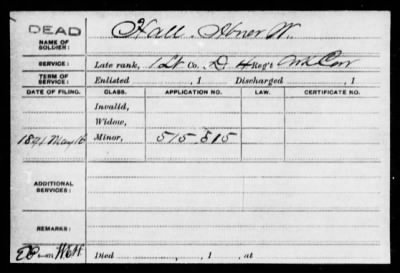 DEAD
NAME OF SOLDIER: Hall, Abner W.
SERVICE: Late rank, 1 Lt Co. D, 4 Reg't Cav
TERM OF SERVICE: Enlisted , 1 Discharged , 1
DATE OF FILING. CLASS. APPLICATION NO. LAW. CERTIFICATE NO.
Invalid,
Widow,
1891 May 16 Minor, 515 815
ADDITIONAL SERVICES:
REMARKS:
Died , 1 , at